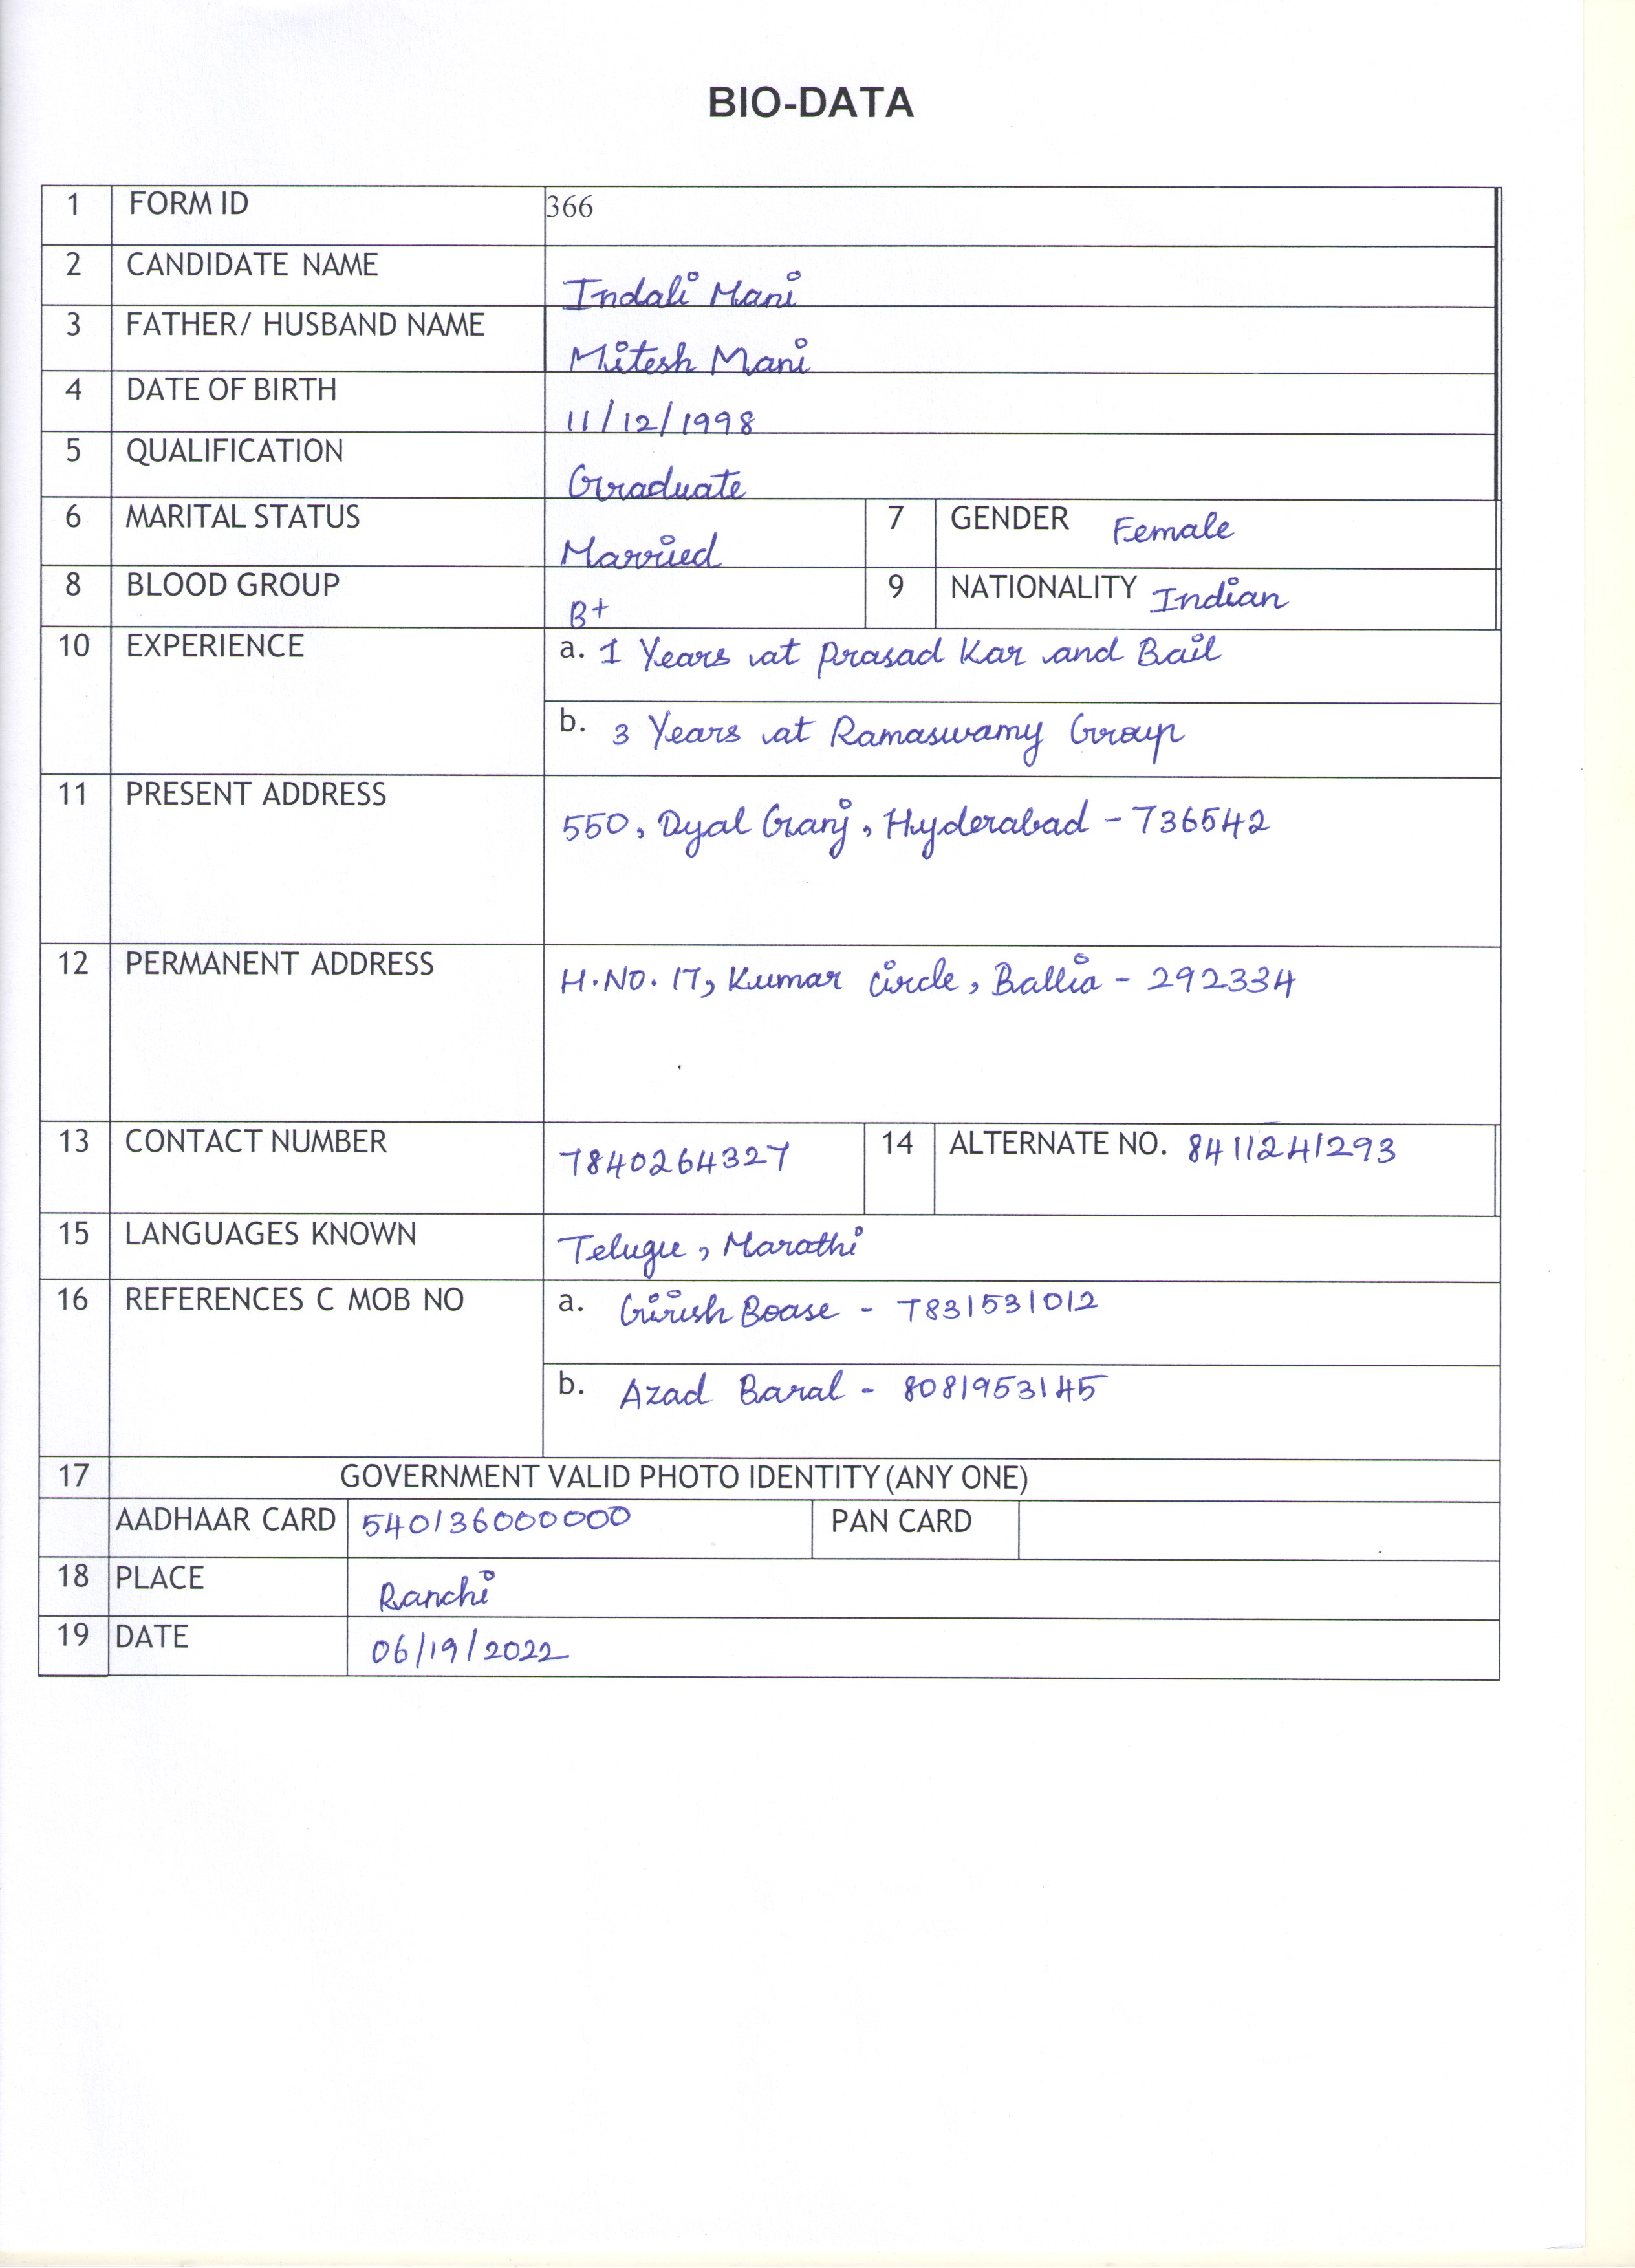 BIO-DATA
1 FORM ID 366
2 CANDIDATE NAME Indali Mani
3 FATHER/ HUSBAND NAME Mitesh Mani
4 DATE OF BIRTH 11/12/1998
5 QUALIFICATION Graduate
6 MARITAL STATUS Married 7 GENDER Female
8 BLOOD GROUP B+ 9 NATIONALITY Indian
10 EXPERIENCE a. 1 Years at Prasad Kar and Bail
b. 3 Years at Ramaswamy Group
11 PRESENT ADDRESS 550, Dyal Ganj, Hyderabad - 736542
12 PERMANENT ADDRESS H.NO. 17, Kumar Circle, Ballia - 292334
13 CONTACT NUMBER 7840264327 14 ALTERNATE NO. 8411241293
15 LANGUAGES KNOWN Telugu, Marathi
16 REFERENCES C MOB NO a. Girish Boase - 7831531012
b. Azad Baral - 8081953145
17 GOVERNMENT VALID PHOTO IDENTITY (ANY ONE)
AADHAAR CARD 540136000000 PAN CARD
18 PLACE Ranchi
19 DATE 06/19/2022